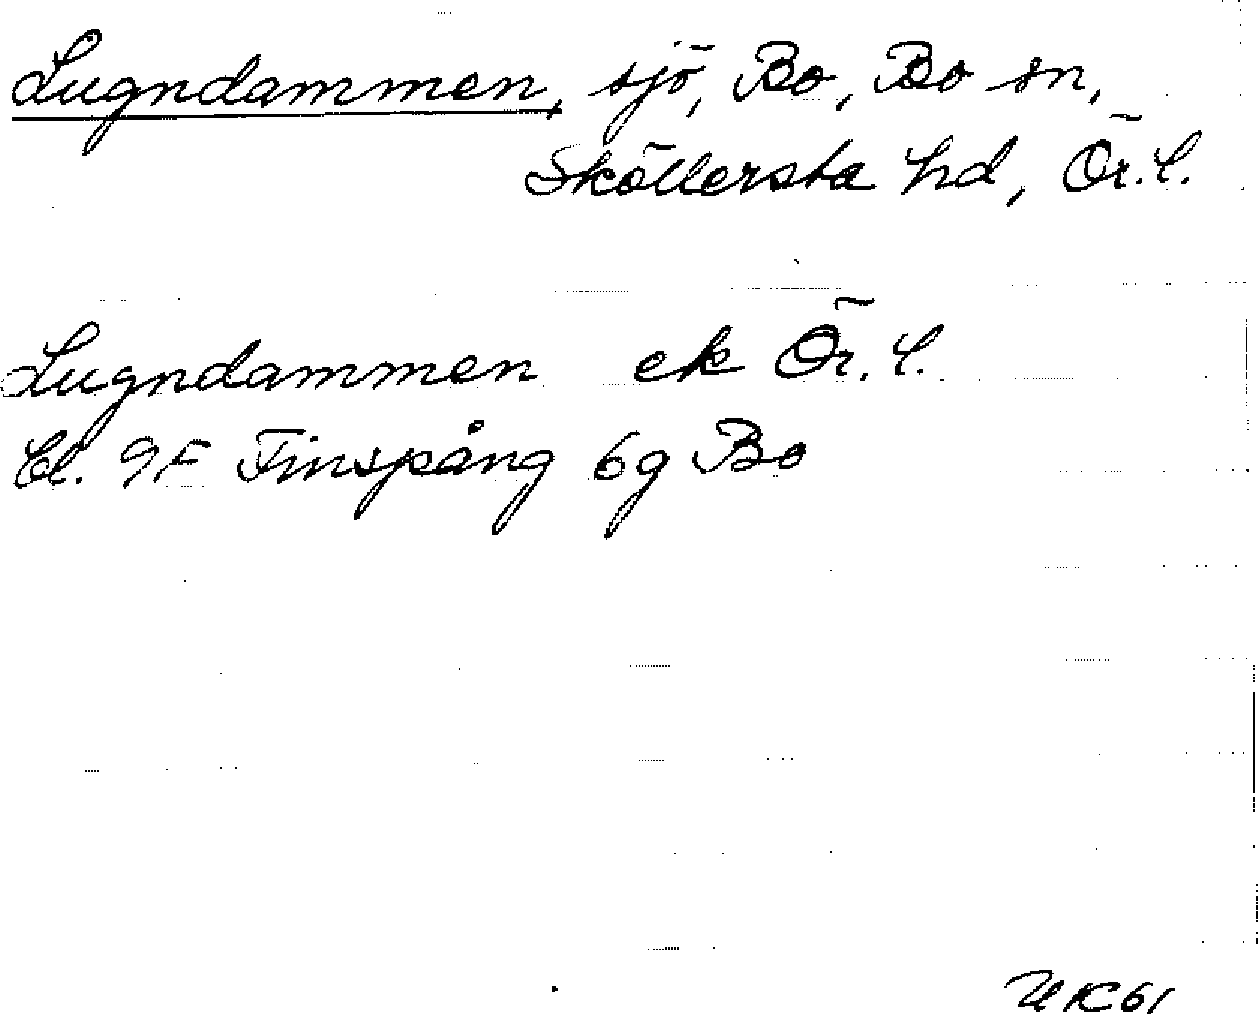 Lugndammen, sjö, Bo, Bo sn,
Sköllersta hd, Ör. l.
Lugndammen ek Ör. l.
Bl. 9F Finspång 6g Bo
UK61